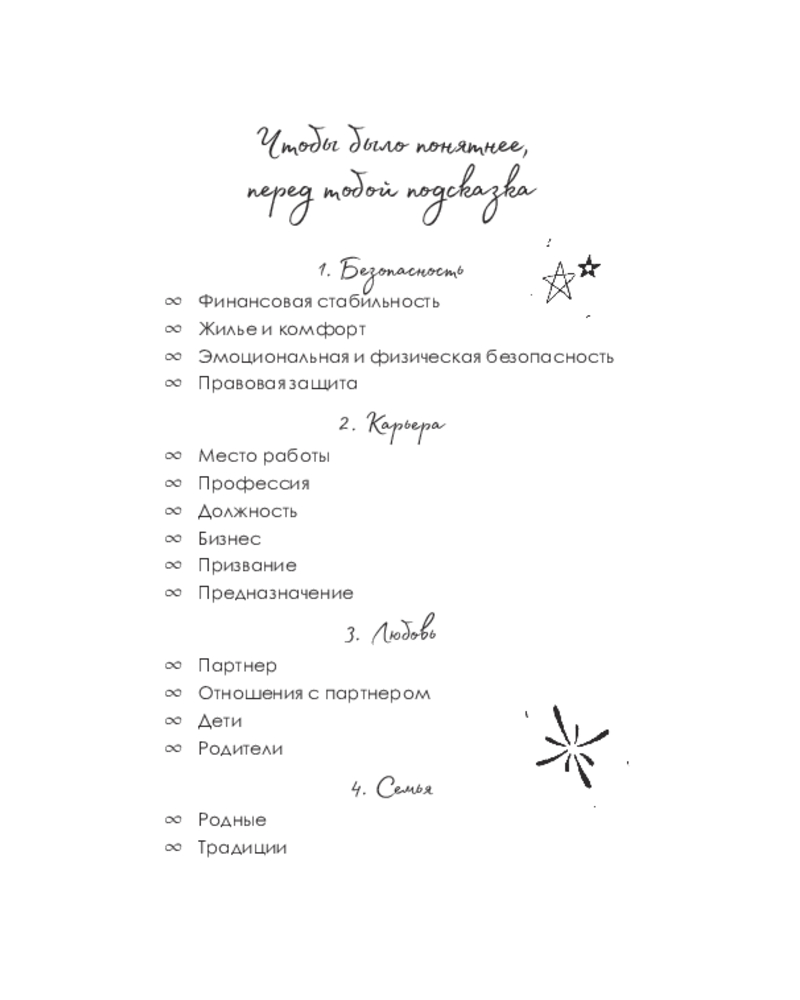 Чтобы было понятнее,
перед тобой подсказка
1. Безопасность
∞ Финансовая стабильность
∞ Жилье и комфорт
∞ Эмоциональная и физическая безопасность
∞ Правовая защита
2. Карьера
∞ Место работы
∞ Профессия
∞ Должность
∞ Бизнес
∞ Призвание
∞ Предназначение
3. Любовь
∞ Партнер
∞ Отношения с партнером
∞ Дети
∞ Родители
4. Семья
∞ Родные
∞ Традиции